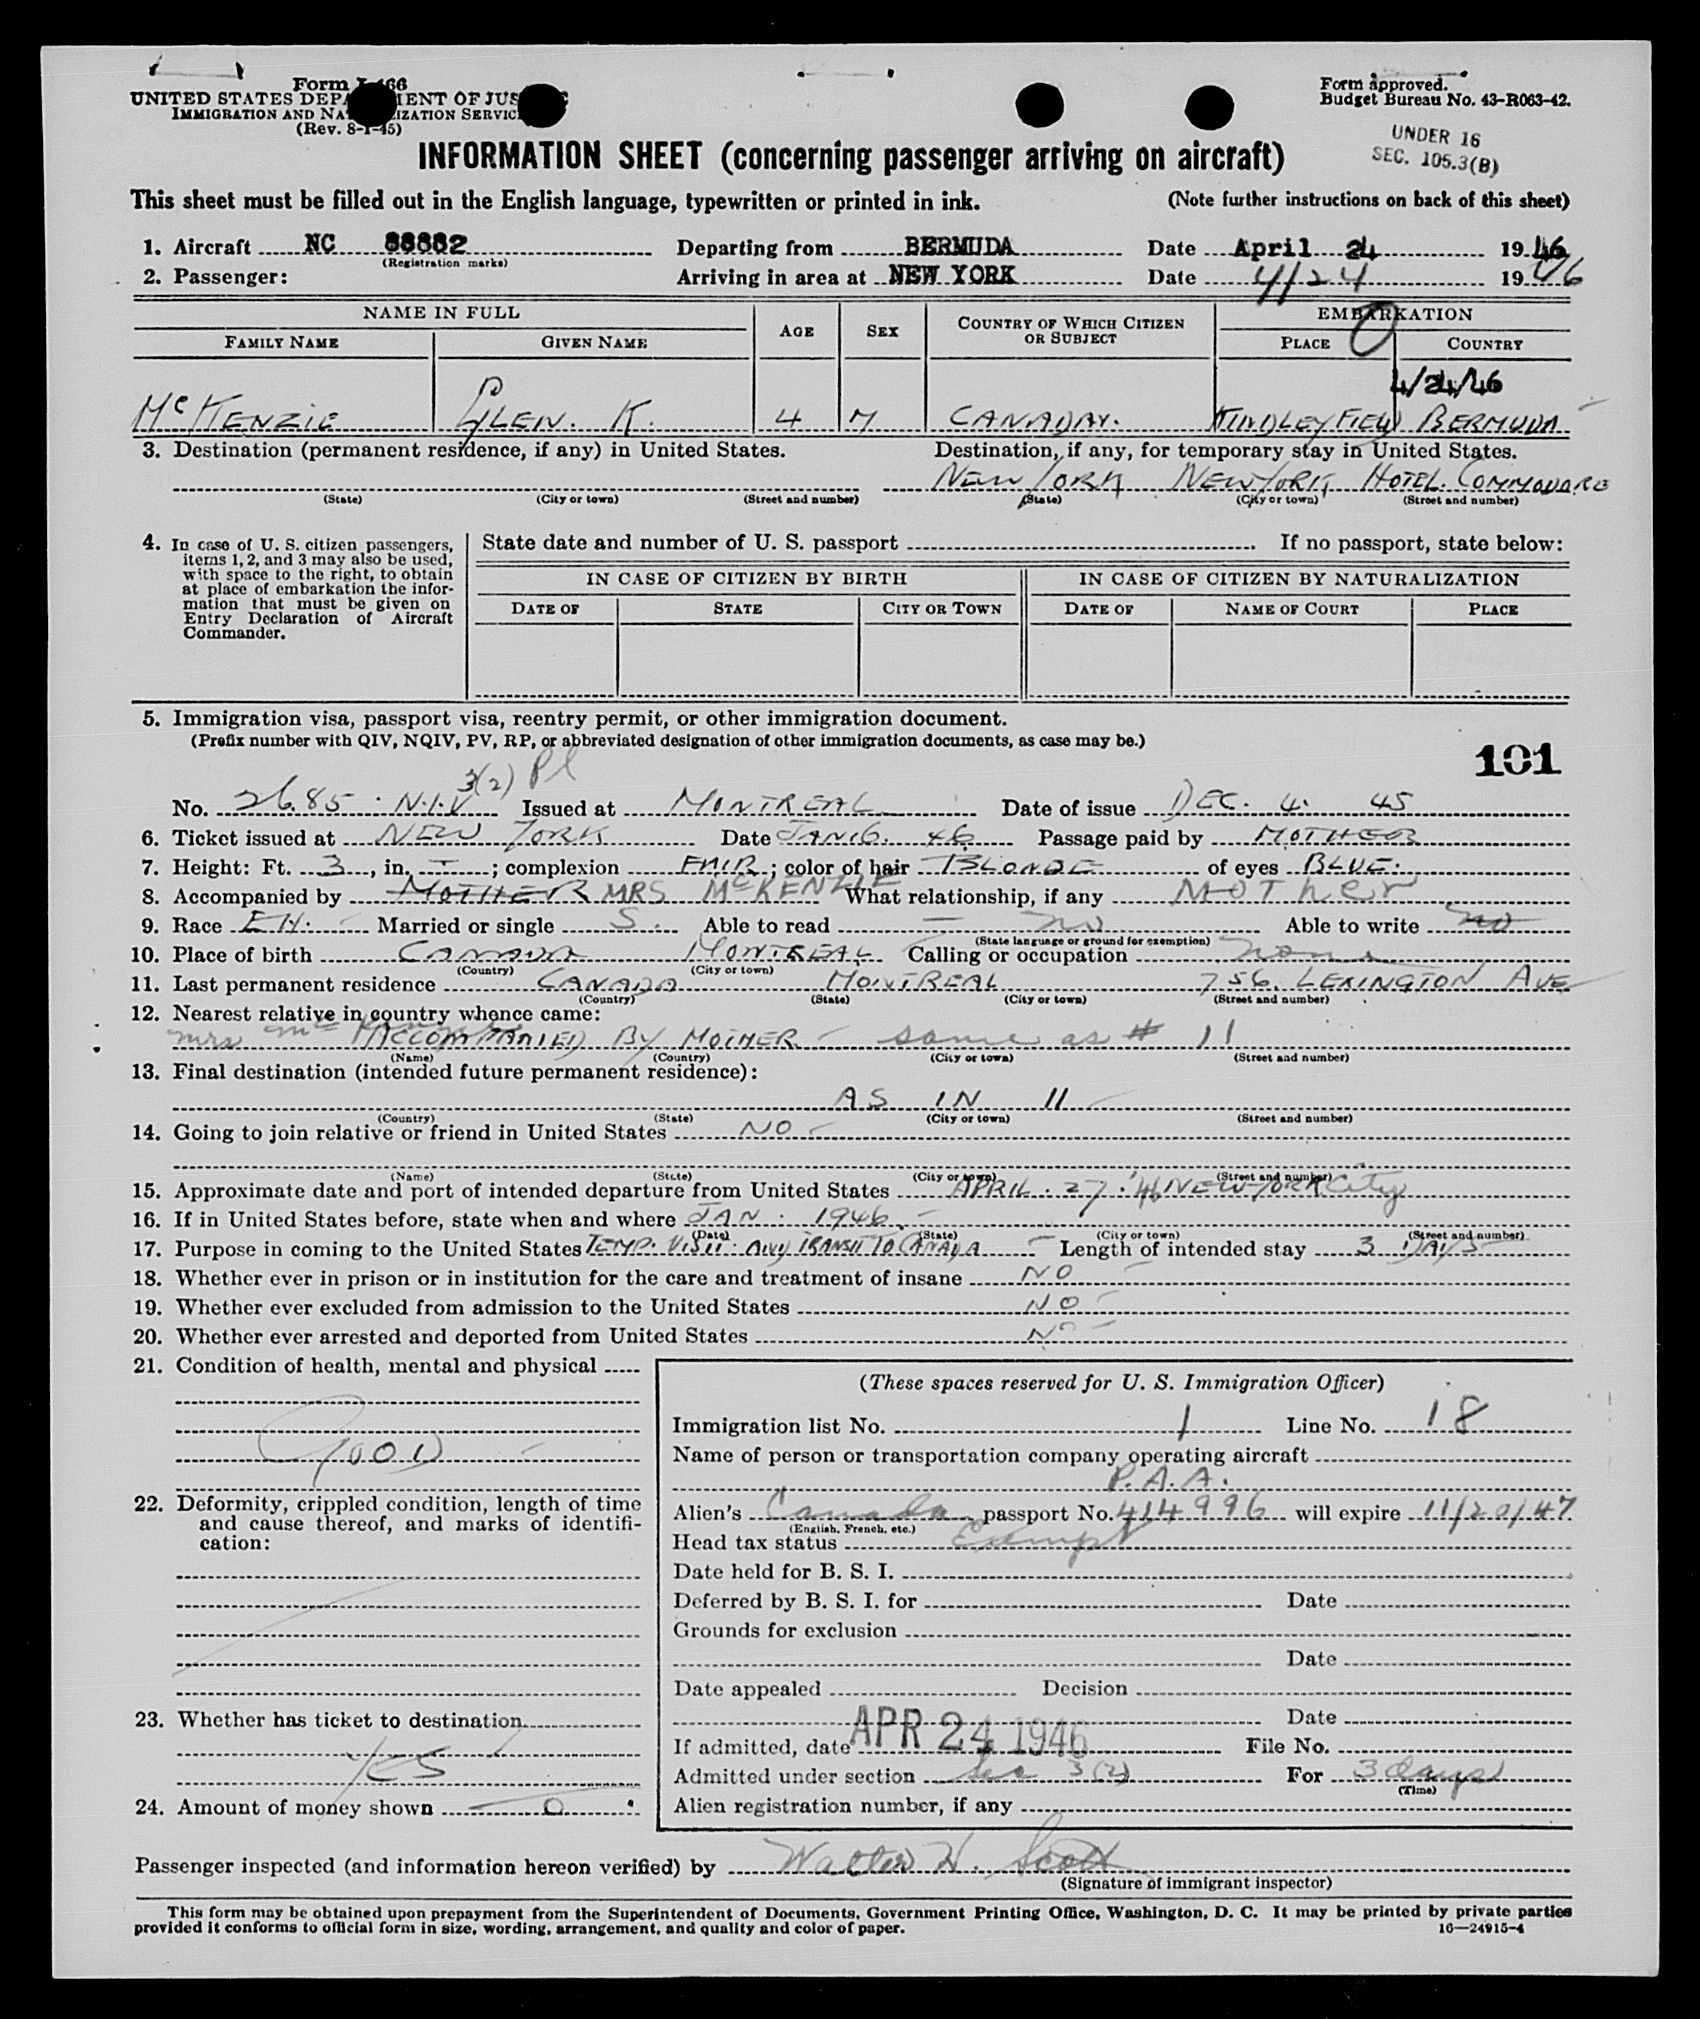 Form I-466
UNITED STATES DEPARTMENT OF JUSTICE
IMMIGRATION AND NATURALIZATION SERVICE
(Rev. 8-1-45)
Form approved.
Budget Bureau No. 43-R063-42.
UNDER 16
SEC. 105.3(B)
INFORMATION SHEET (concerning passenger arriving on aircraft)
This sheet must be filled out in the English language, typewritten or printed in ink. (Note further instructions on back of this sheet)
1. Aircraft NC 88882 Departing from BERMUDA Date April 24 1946
(Registration marks)
2. Passenger: Arriving in area at NEW YORK Date 4/24 1946
NAME IN FULL AGE SEX COUNTRY OF WHICH CITIZEN OR SUBJECT EMBARKATION
FAMILY NAME GIVEN NAME PLACE COUNTRY
4/24/46
McKENZIE GLEN. K. 4 M CANADAY. KINDLEY FIELD BERMUDA
3. Destination (permanent residence, if any) in United States. Destination, if any, for temporary stay in United States.
NEW YORK NEW YORK HOTEL. COMMODARE
(State) (City or town) (Street and number) (State) (City or town) (Street and number)
4. In case of U. S. citizen passengers, items 1, 2, and 3 may also be used, with space to the right, to obtain at place of embarkation the information that must be given on Entry Declaration of Aircraft Commander.
State date and number of U. S. passport If no passport, state below:
IN CASE OF CITIZEN BY BIRTH IN CASE OF CITIZEN BY NATURALIZATION
DATE OF STATE CITY OR TOWN DATE OF NAME OF COURT PLACE
5. Immigration visa, passport visa, reentry permit, or other immigration document.
(Prefix number with QIV, NQIV, PV, RP, or abbreviated designation of other immigration documents, as case may be.)
101
3(2) Pl
No. 2685 N.I.V Issued at MONTREAL Date of issue DEC. 4. 45
6. Ticket issued at NEW YORK Date JAN 16. 46 Passage paid by MOTHER
7. Height: Ft. 3, in. —; complexion FAIR; color of hair BLONDE of eyes BLUE.
8. Accompanied by MOTHER MRS McKENZIE What relationship, if any MOTHER
9. Race EN. Married or single S. Able to read — no Able to write no
(State language or ground for exemption)
10. Place of birth CANADA MONTREAL Calling or occupation none
(Country) (City or town)
11. Last permanent residence CANADA MONTREAL 756. LEXINGTON AVE
(Country) (State) (City or town) (Street and number)
12. Nearest relative in country whence came:
mrs ACCOMPANIED BY MOTHER — same as # 11
(Name) (Country) (City or town) (Street and number)
13. Final destination (intended future permanent residence):
AS IN 11
(Country) (State) (City or town) (Street and number)
14. Going to join relative or friend in United States NO
(Name) (State) (City or town) (Street and number)
15. Approximate date and port of intended departure from United States APRIL. 27. '46 NEW YORK City
16. If in United States before, state when and where JAN. 1946.
(Date) (State) (City or town) (Street and number)
17. Purpose in coming to the United States TEMP. VISIT. TRANSIT TO CANADA Length of intended stay 3 DAYS
18. Whether ever in prison or in institution for the care and treatment of insane NO
19. Whether ever excluded from admission to the United States NO
20. Whether ever arrested and deported from United States NO
21. Condition of health, mental and physical
GOOD
22. Deformity, crippled condition, length of time and cause thereof, and marks of identification:
23. Whether has ticket to destination
YES
24. Amount of money shown 0
(These spaces reserved for U. S. Immigration Officer)
Immigration list No. 1 Line No. 18
Name of person or transportation company operating aircraft
P.A.A.
Alien's Canada passport No. 414996 will expire 11/20/47
(English, French, etc.)
Head tax status Exempt
Date held for B. S. I.
Deferred by B. S. I. for Date
Grounds for exclusion
Date
Date appealed Decision
Date
If admitted, date APR 24 1946 File No.
Admitted under section Sec 3(2) For 3 days
(Time)
Alien registration number, if any
Passenger inspected (and information hereon verified) by Walter H. Scott
(Signature of immigrant inspector)
This form may be obtained upon prepayment from the Superintendent of Documents, Government Printing Office, Washington, D. C. It may be printed by private parties
provided it conforms to official form in size, wording, arrangement, and quality and color of paper. 16—24915-4